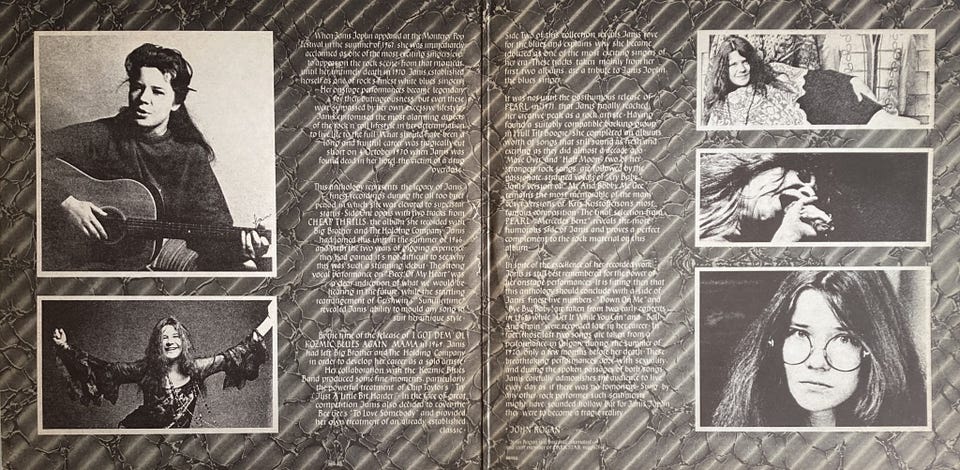 When Janis Joplin appeared at the Monterey Pop
Festival in the summer of 1967, she was immediately
acclaimed as one of the most exciting singers ever
to appear on the rock scene. From that moment
until her untimely death in 1970, Janis established
herself as one of rock's finest white blues singers.
Her onstage performances became legendary
for their outrageousness but even these
were surpassed by her own excessive lifestyle.
Janis epitomised the most alarming aspects
of the rock'n'roll lifestyle in her determination
to live life to the full. What should have been a
long and fruitful career was tragically cut
short on 4 October 1970 when Janis was
found dead in her hotel, the victim of a drug
overdose.
This anthology represents the legacy of Janis'
finest recordings during the all too brief
period in which she was elevated to superstar
status. Side One opens with two tracks from
CHEAP THRILLS, the album she recorded with
Big Brother and The Holding Company. Janis
had joined this unit in the summer of 1966
and with the two years of gigging experience
they had gained it's not difficult to see why
this was such a stunning debut. The strong
vocal performance on "Piece Of My Heart" was
a clear indication of what we would be
hearing in the future, while the startling
rearrangement of Gershwin's "Summertime"
revealed Janis' ability to mould any song to
suit her unique style.
By the time of the release of I GOT DEM OL'
KOZMIC BLUES AGAIN MAMA in 1969, Janis
had left Big Brother and The Holding Company
in order to develop her career as a solo artist.
Her collaboration with the Kozmic Blues
Band produced some fine moments, particularly
the powerful treatment of Chip Taylor's "Try
Just A Little Bit Harder". In the face of great
competition Janis also decided to cover the
Bee Gee's "To Love Somebody" and provided
her own treatment of an already established
classic.
Side Two of this collection reveals Janis' love
for the blues and explains why she became
idolized as one of the most exciting singers of
her era. These tracks, taken mainly from her
first two albums, are a tribute to Janis Joplin
the blues singer.
It was not until the posthumous release of
PEARL in 1971, that Janis finally reached
her creative peak as a rock artiste. Having
found a suitably compatible backing group
in Full Tilt Boogie, she completed an album's
worth of songs that still sound as fresh and
exciting as they did almost a decade ago.
"Move Over" and "Half Moon", two of her
strongest rock songs, are followed by the
passionate, strained vocals of "Cry Baby".
Janis' version of "Me And Bobby McGee"
remains the most memorable of the many
cover versions of Kris Kristofferson's most
famous composition. The final selection from
PEARL, "Mercedes Benz", reveals the more
humorous side of Janis and proves a perfect
complement to the rock material on this
album.
In spite of the excellence of her recorded work,
Janis is still best remembered for the power of
her onstage performances. It is fitting then that
this anthology should conclude with a side of
Janis' finest live numbers. "Down On Me" and
"Bye Bye Baby" are taken from two early concerts
in 1968 while "Get It While You Can" and "Ball
And Chain" were recorded later in her career. In
fact, those last two songs are taken from a
performance in Calgary during the summer of
1970, only a few months before her death. These
breathtaking performances ooze with sexuality
and during the spoken passages of both songs
Janis carefully admonishes the audience to live
every day as if there was no tomorrow. Sung by
any other rock performer such sentiments
might have sounded hollow but for Janis Joplin
they were to become a tragic reality.
JOHN ROGAN